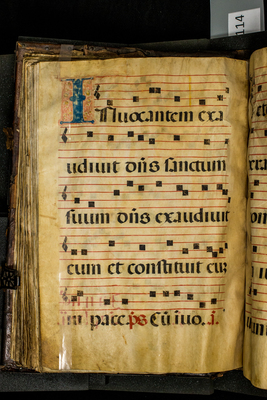 114
Inuocantem exa
udiuit dñs sanctum
suum dñs exaudiuit
eum et constituit eum
in pace. ps Cũ inuo. .i.